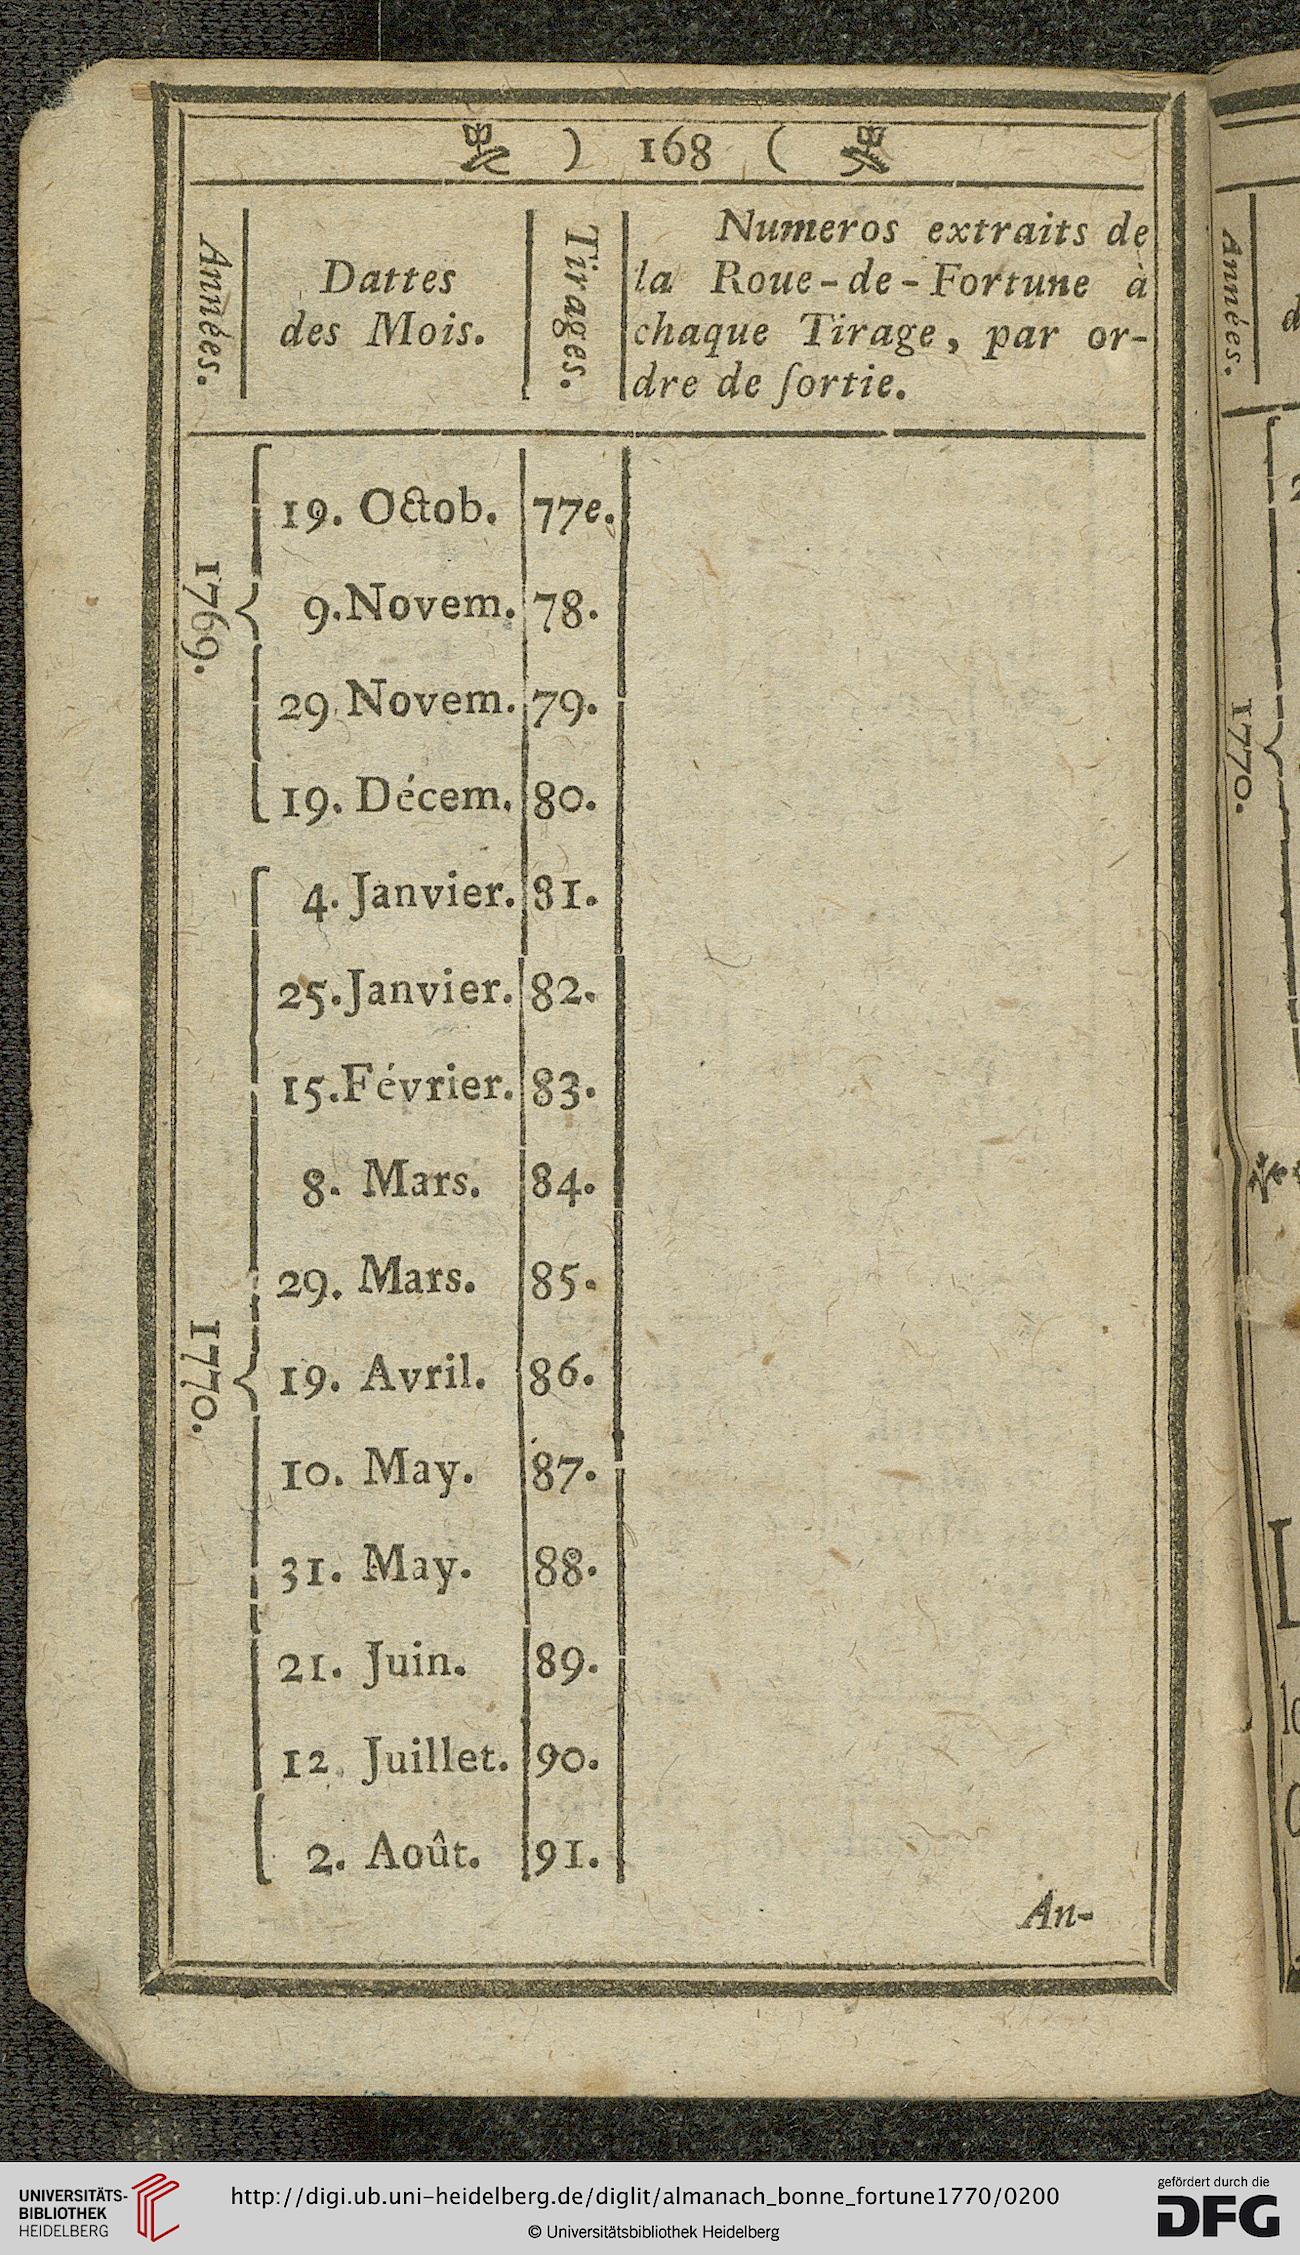 ) 168 (
Années.
Dattes
des Mois.
Tirages.
Numeros extraits de
la Roue-de-Fortune à
chaque Tirage, par or-
dre de ſortie.
1769.
19. Octob. 77e.
9. Novem. 78.
29. Novem. 79.
19. Décem. 80.
1770.
4. Janvier. 81.
25. Janvier. 82.
15. Février. 83.
8. Mars. 84.
29. Mars. 85.
19. Avril. 86.
10. May. 87.
31. May. 88.
21. Juin. 89.
12. Juillet. 90.
2. Août. 91.
An-
Années.
1770.
UNIVERSITÄTS-
BIBLIOTHEK
HEIDELBERG
http://digi.ub.uni-heidelberg.de/diglit/almanach_bonne_fortune1770/0200
© Universitätsbibliothek Heidelberg
gefördert durch die
DFG